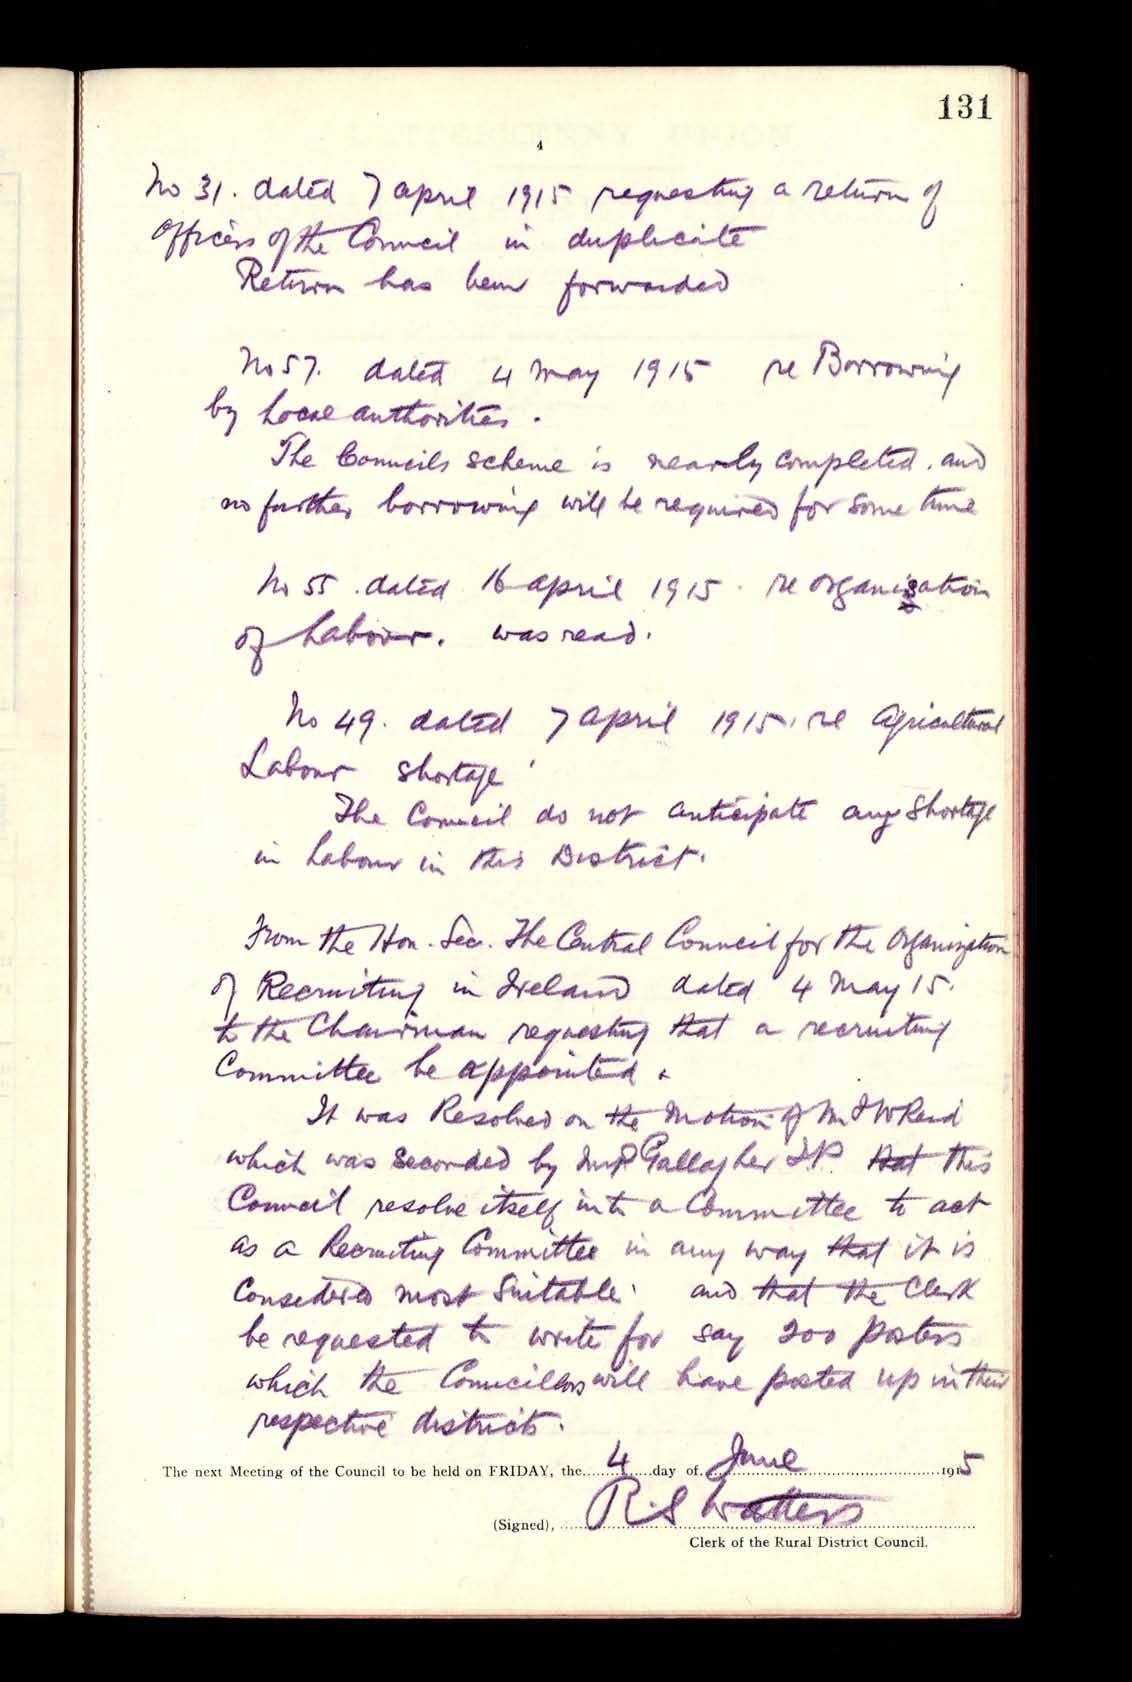 131
4
No 31. dated 7 april 1915 requesting a return of
Officers of the Council in duplicate
Return has been forwarded
No 57. dated 4 May 1915 re Borrowing
by Local authorities.
The Councils scheme is nearly completed. and
no further borrowing will be required for some time
No 55. dated 16 april 1915. re organisation
of Labour. was read.
No 49. dated 7 april 1915. re Agricultural
Labour shortage
The Council do not anticipate any shortage
in Labour in this District.
From the Hon. Sec. The Central Council for the Organization
of Recruiting in Ireland dated 4 May 15.
to the Chairman requesting that a recruiting
Committee be appointed.
It was Resolved on the Motion of Mr J W Reid
which was Seconded by Mr P Gallagher J.P. that this
Council resolve itself into a Committee to act
as a Recruiting Committee in any way that it is
Consedered most Suitable. and that the Clerk
be requested to write for say 200 posters
which the Councillors will have posted up in their
respective districts.
The next Meeting of the Council to be held on FRIDAY, the 4 day of June 1915
R. S Watters
(Signed),
Clerk of the Rural District Council.